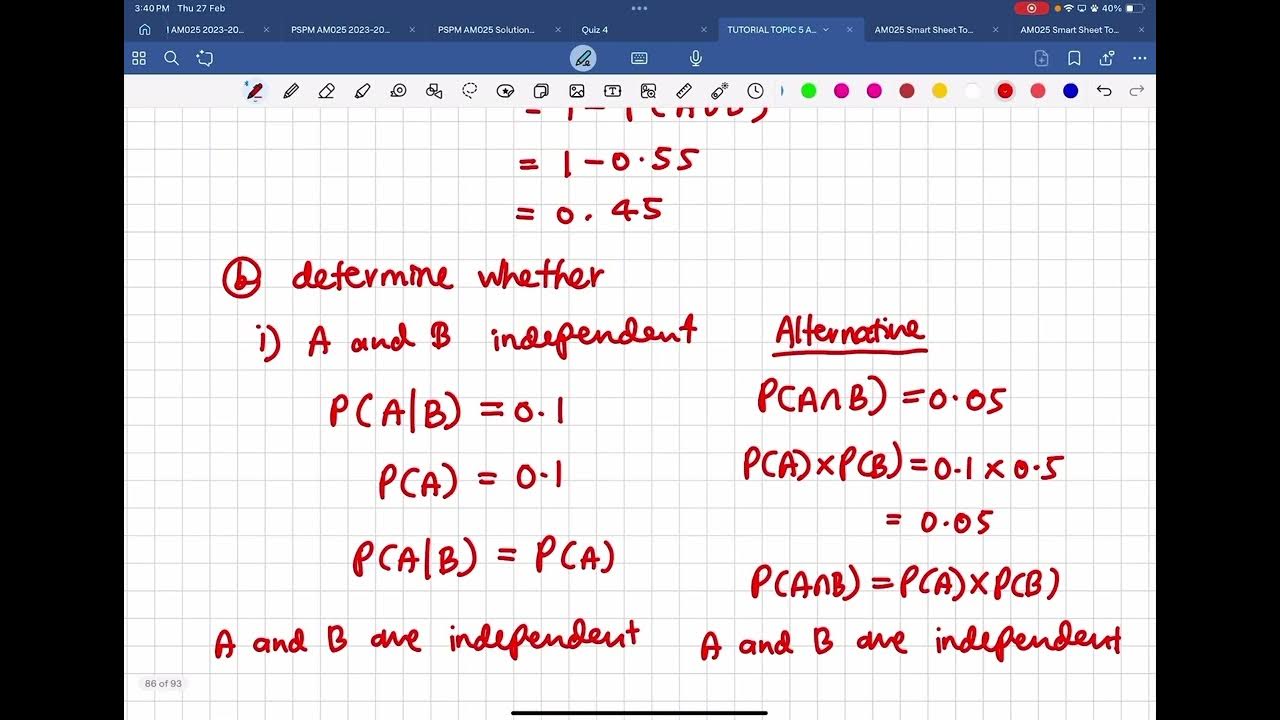 3:40 PM Thu 27 Feb
40%
I AM025 2023-20...
PSPM AM025 2023-20...
PSPM AM025 Solution...
Quiz 4
TUTORIAL TOPIC 5 A...
AM025 Smart Sheet To...
AM025 Smart Sheet To...
= 1 - P(A∪B)
= 1 - 0.55
= 0.45
b determine whether
i) A and B independent
P(A|B) = 0.1
P(A) = 0.1
P(A|B) = P(A)
A and B are independent
Alternative
P(A∩B) = 0.05
P(A)×P(B) = 0.1 × 0.5
= 0.05
P(A∩B) = P(A)×P(B)
A and B are independent
86 of 93